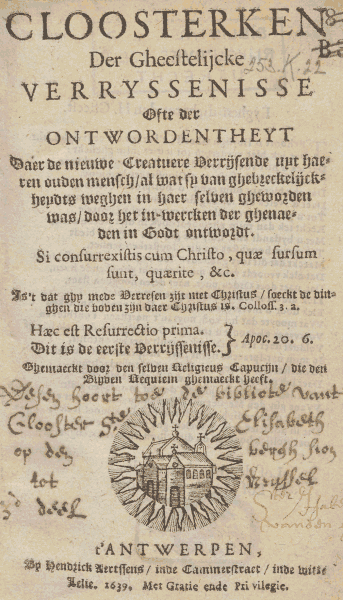 CLOOSTERKEN
Der Gheestelijcke
253.K.22
VERRYSSENISSE
Ofte der
ONTWORDENTHEYT
Daer de nieuwe Creatuere Verrijsende uyt hae-
ren ouden mensch/al wat sy van ghebreckelijck-
heydts weghen in haer selven gheworden
was/ door het in-wercken der ghenae-
den in Godt ontwordt.
Si consurrexistis cum Christo, quæ sursum
sunt, quærite, &c.
Is't dat ghy mede Verresen zijt met Christus / soeckt de din-
ghen die boven zijn daer Christus is. Coloss. 3. 2.
Hæc est Resurrectio prima.
Dit is de eerste Verrijssenisse. } Apoc. 20. 6.
Ghemaeckt door den selven Religieus Capucijn / die den
Blyden Requiem ghemaeckt heeft.
Desen hoort toe de bibliote vant
Clooster Ste Elisabeth
op den bergh sion
tot Brussel
3e deel
t'ANTWERPEN,
By Hendrick Aertssens / inde Cammerstraet / inde witte
Lelie. 1639. Met Gratie ende Privilegie.